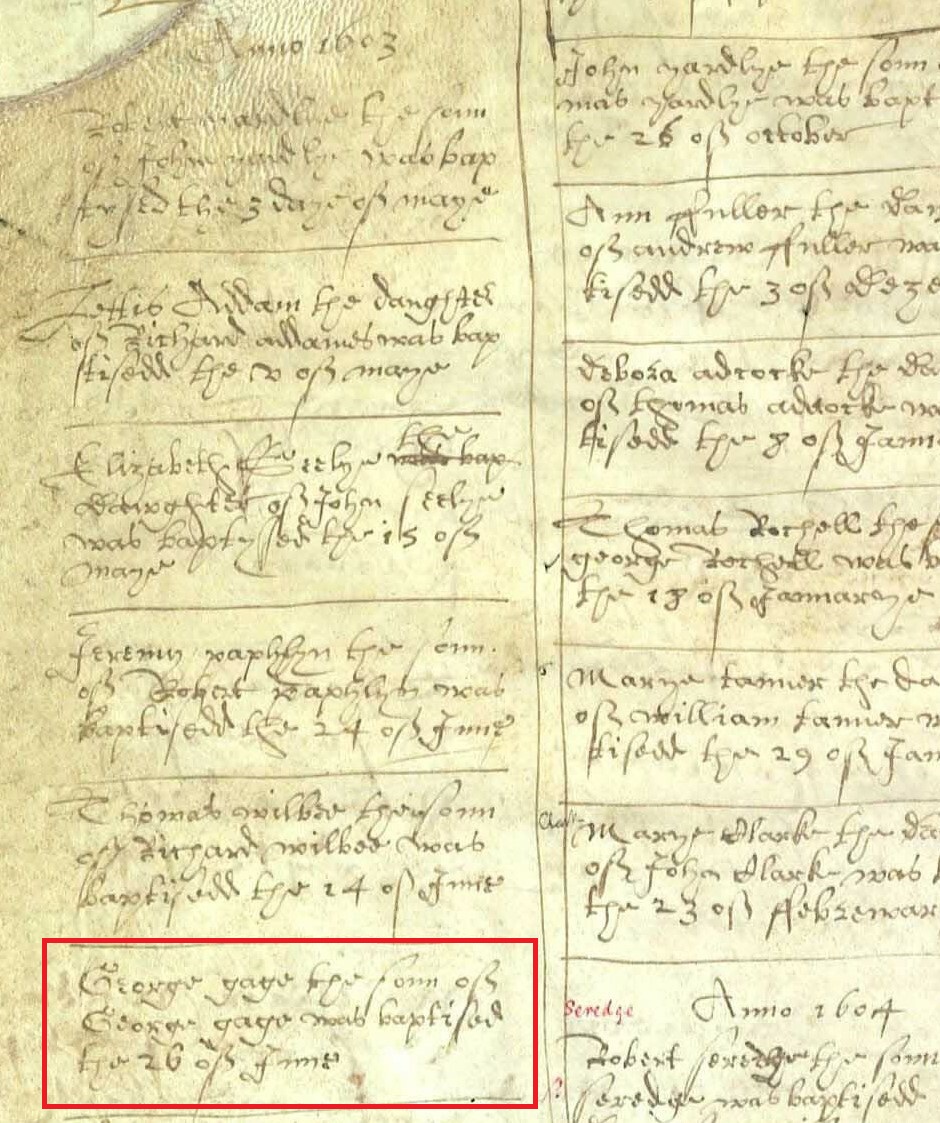 Anno 1603
Robert yardlye the sonn
of John yardlye was bap
tysed the 3 daye of maye
Lettis Addam the daughter
of Richard addames was bap
tisedd the v of maye
Elizabeth Seelye the was bap
dawghter of John seelye
was baptysed the 15 of
maye
Jeremy paphlyn the sonn
of Robert paphlyn was
baptisedd the 24 of June
Thomas wilbee the sonn
of Richard wilbee was
baptisedd the 14 of June
George gage the sonn of
George gage was baptised
the 26 of June
John yardlye the sonn
mas yardlye was bapt
the 26 of october
Ann ffuller the dau
of andrew ffuller wa
tisedd the 3 of deze
debora adcocke the da
of thomas adcocke wa
tisedd the 8 of Janu
Thomas Rochell the s
george Rochell was b
the 18 of Januarye
Marye tanner the da
of william tanner w
tisedd the 29 of Jan
Clark
Marye Clarke the da
of John Clarke was b
the 23 of ffebrewar
Seredge
Anno 1604
Robert seredge the sonn
seredge was baptisedd